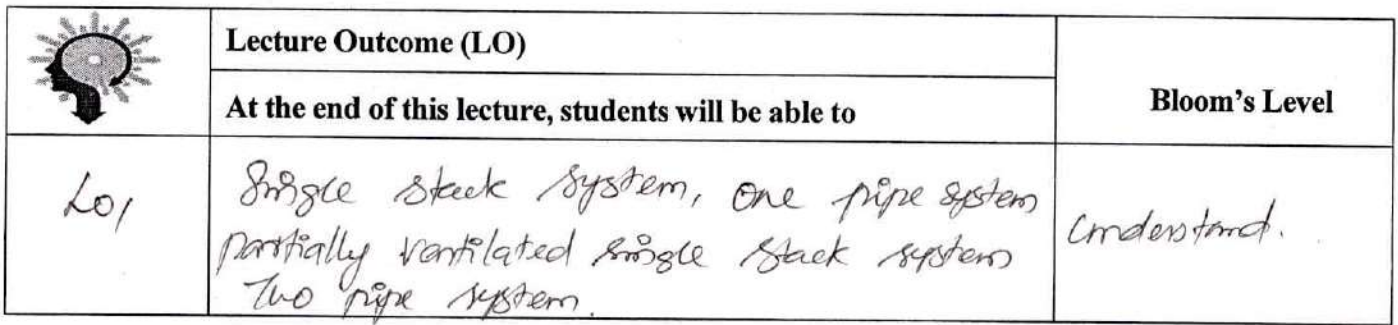 Lecture Outcome (LO)
At the end of this lecture, students will be able to
Bloom's Level
LO1
Single stack system, one pipe system
partially ventilated single stack system
Two pipe system.
Understand.